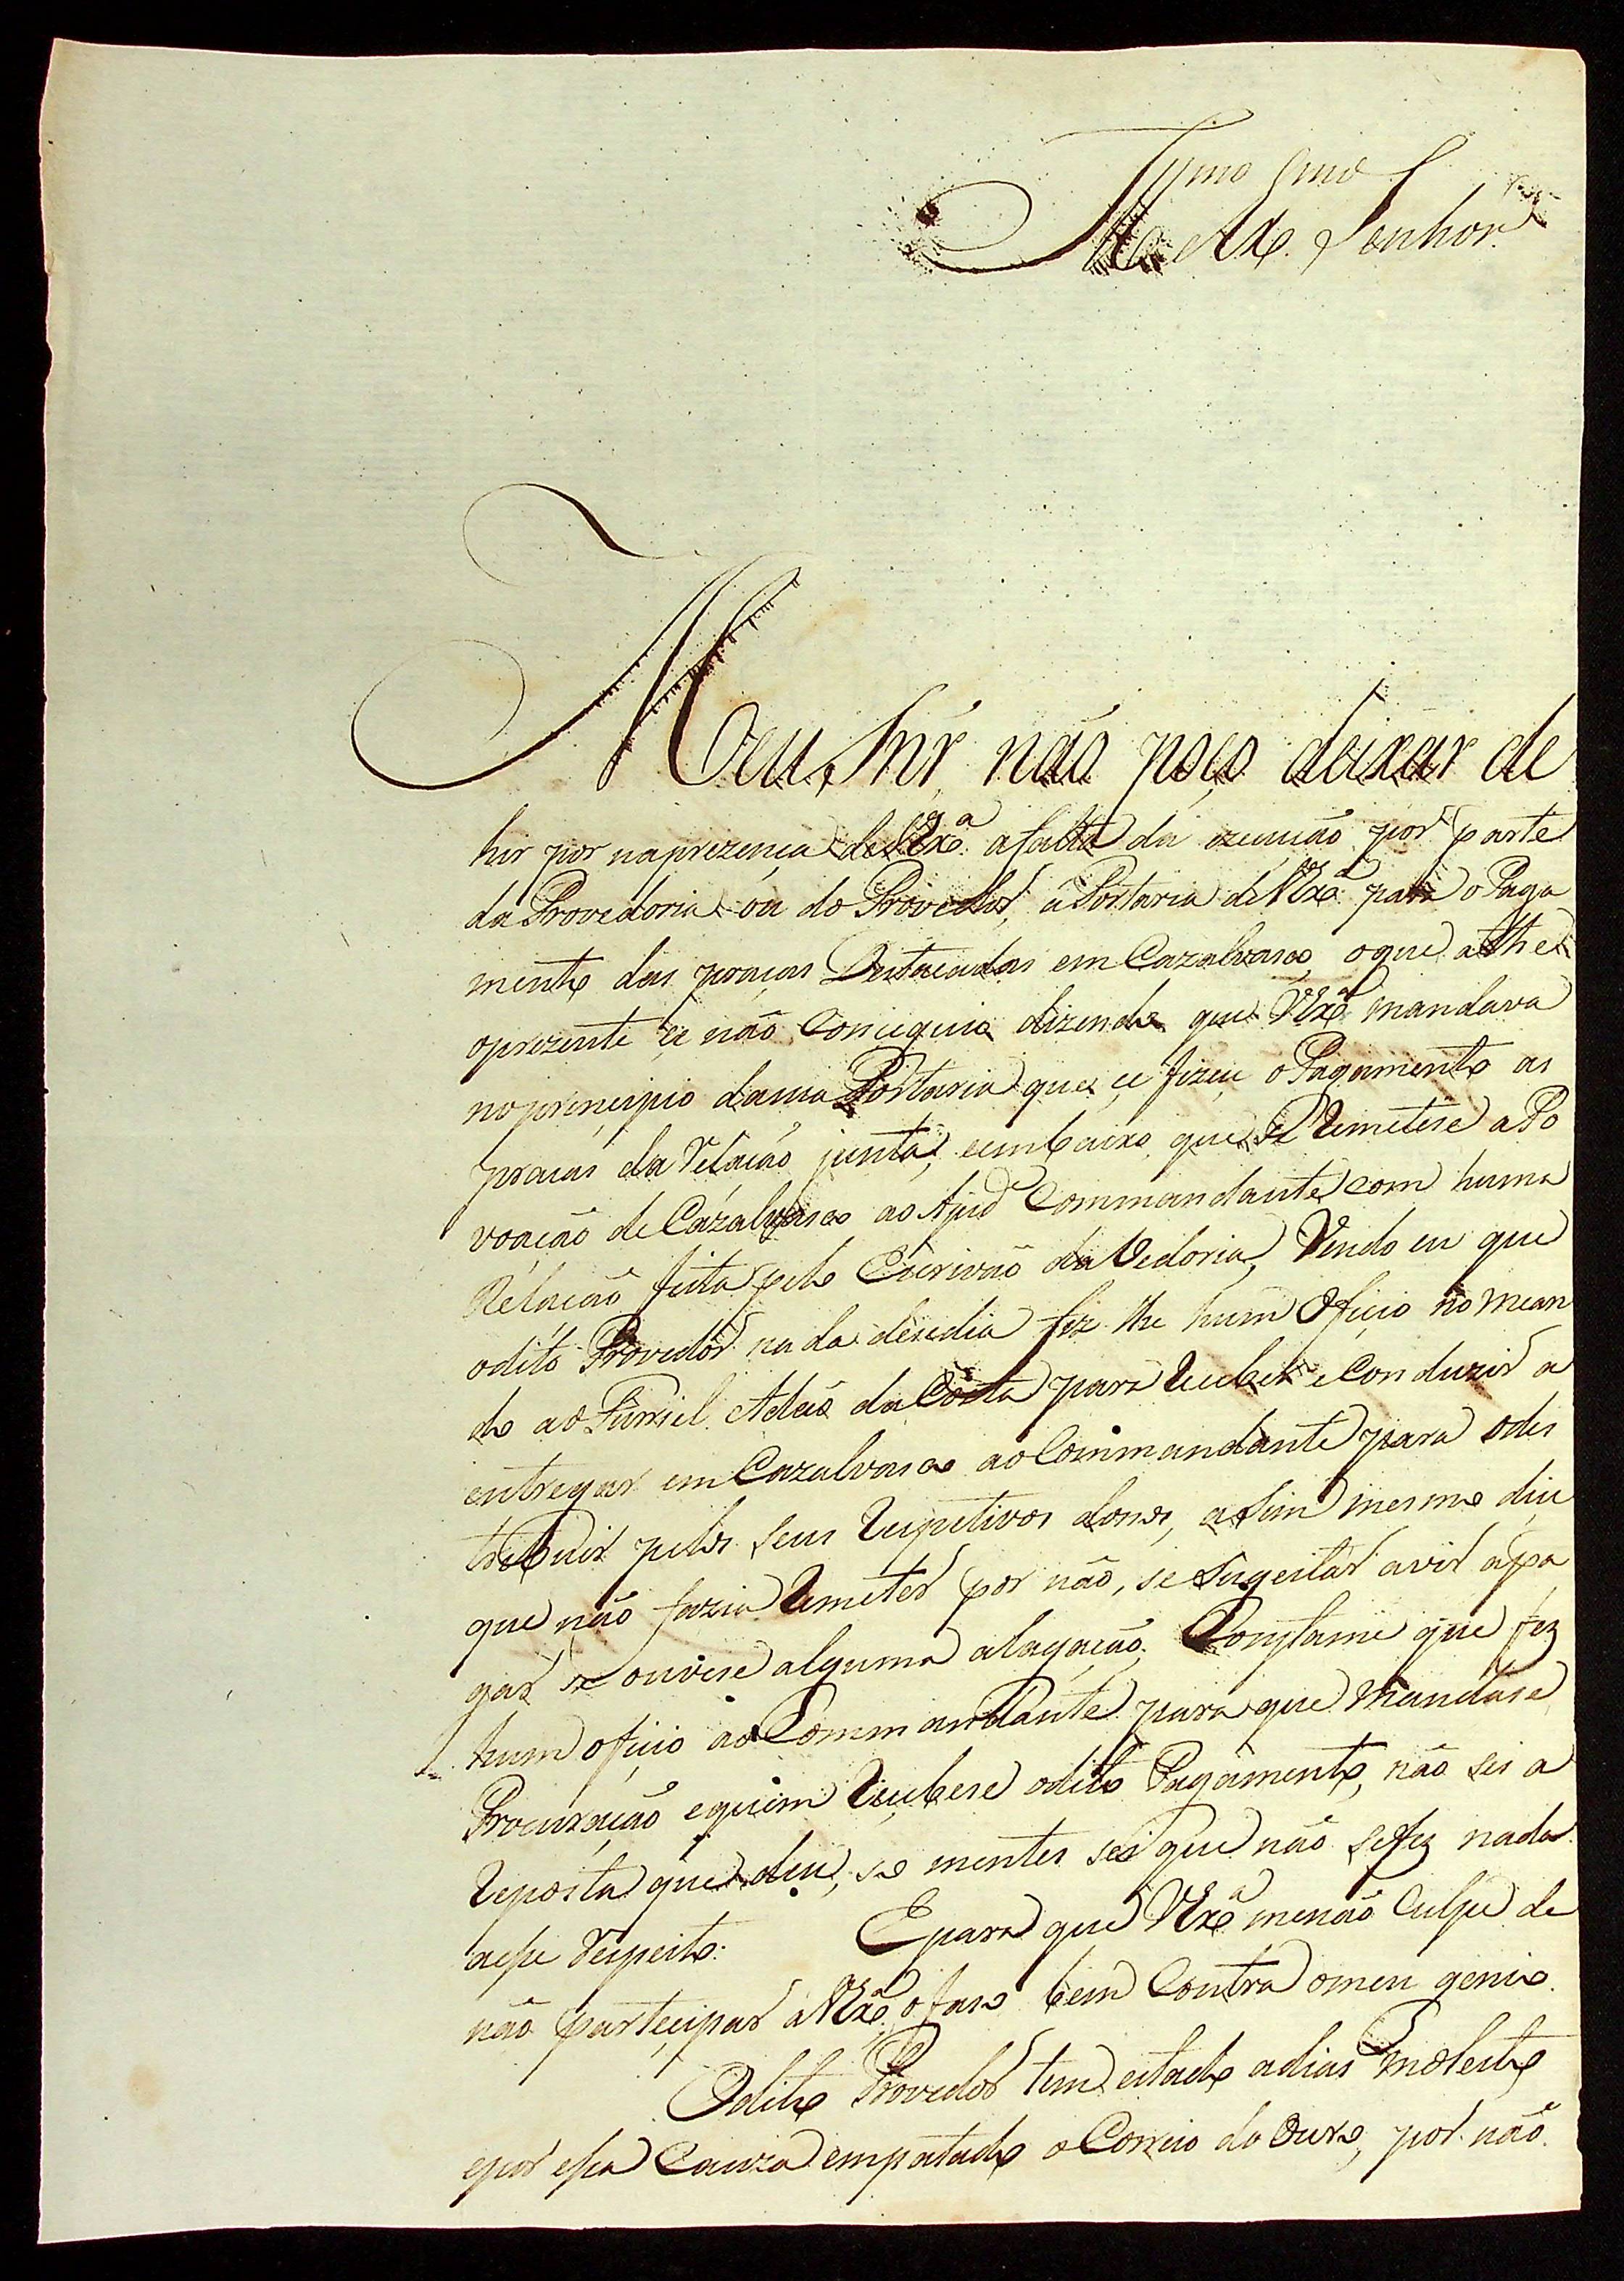 Illmo Exmo Senhor
Meu Snr. não poço deixar de
hir por naprezença de VExª afalta da ezcução por parte
da Provedoria ou do Provedor, á Portaria de VExª para o Paga
mento das praças Destacadas em Cazalvasco, oque athe
oprezente çe não Conceguio dizendo que VExª mandava
noprincipio dasua Portaria que çe fizeçe o Pagamento as
praças da relação junta, eembaixo que se Remetese a Po
voação de Cazalvasco ao Ajude Commandante com huma
Relação feita pelo Escrivão da Vedoria, Vendo eu que
odito Provedor nada desedia fez lhe hum Oficio no mean
do ao Furriel Adão da Costa para Receber e Conduzir a
entregar em Cazalvasco ao Commandante para o des
tribuir pelos seus Respetivos donos, asim mesmo diçe
que não fazia Remeter por não, se Sugeitar avir apa
gar se ouvese alguma alagação. Constame que fez
hum oficio ao Commandante para que Mandase
Procuração equem Reçebese odito Pagamento, não sei a
Reposta que deu, so mentes sei que não sefez nada
aesse Respeito. Epara que VExª menão Culpe de
não parteçipar a VExª o faso bem Contra omeu genio.
Odito Provedor tem estado adias molesto
epor essa Cauza empatado o Correio do Ouro, por não